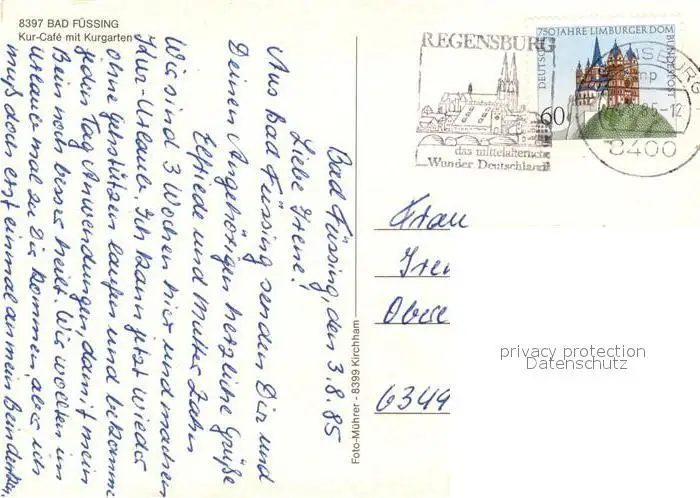 8397 BAD FÜSSING
Kur-Café mit Kurgarten
Bad Füssing, den 3.8.85
Liebe Irene!
Aus Bad Füssing senden Dir und
Deinen Angehörigen herzliche Grüße
Elfriede und Mutter Zahn
Wir sind 3 Wochen hier und machen
Kur-Urlaub. Ich kann jetzt wieder
ohne gehstützen laufen und bekomme
jeden Tag Anwendungen, damit mein
Bein noch besser heilt. Wir wollten im
Urlaub mal zu Dir kommen, aber ich
muß doch erst einmal an mein Bein denken,
Foto-Mührer - 8399 Kirchham
REGENSBURG
das mittelalterliche
Wunder Deutschlands
750 JAHRE LIMBURGER DOM
DEUTSCHE
BUNDESPOST
60
-12
8400
Frau
Obere
6349
privacy protection
Datenschutz